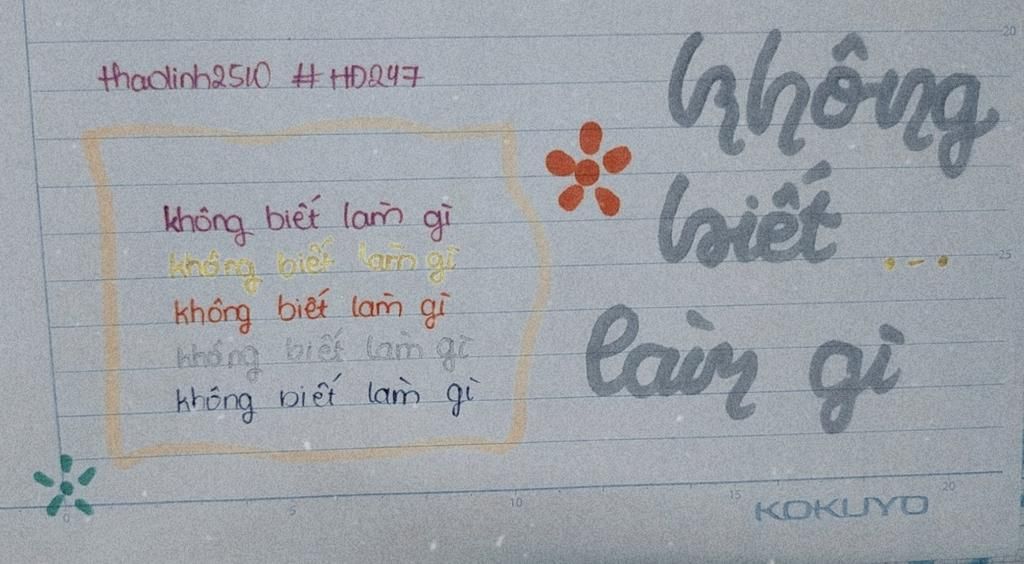 thaolinh2510 # HD247
không biết làm gì
không biết làm gì
không biết làm gì
không biết làm gì
không biết làm gì
không
biết ...
làm gì
KOKUYO
0 5 10 15 20
20
25